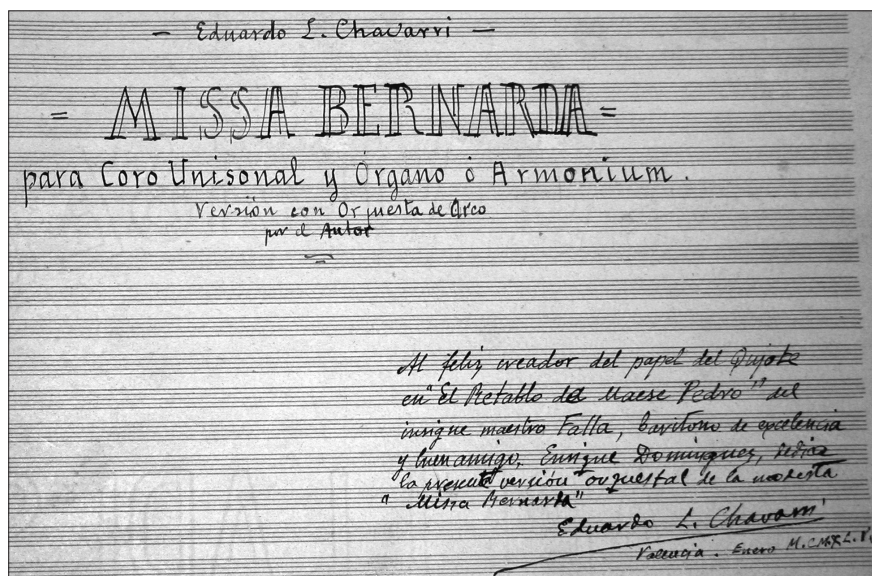 — Eduardo L. Chavarri —
= MISSA BERNARDA =
para Coro Unisonal y Organo ó Armonium.
Versión con Orquesta de Arco
por el Autor
Al feliz creador del papel del Quijote
en "El Retablo de Maese Pedro" del
insigne maestro Falla, barítono de excelencia
y buen amigo, Enrique Dominguez, dedica
la presente versión orquestal de la modesta
"Missa Bernarda"
Eduardo L. Chavarri
Valencia. Enero